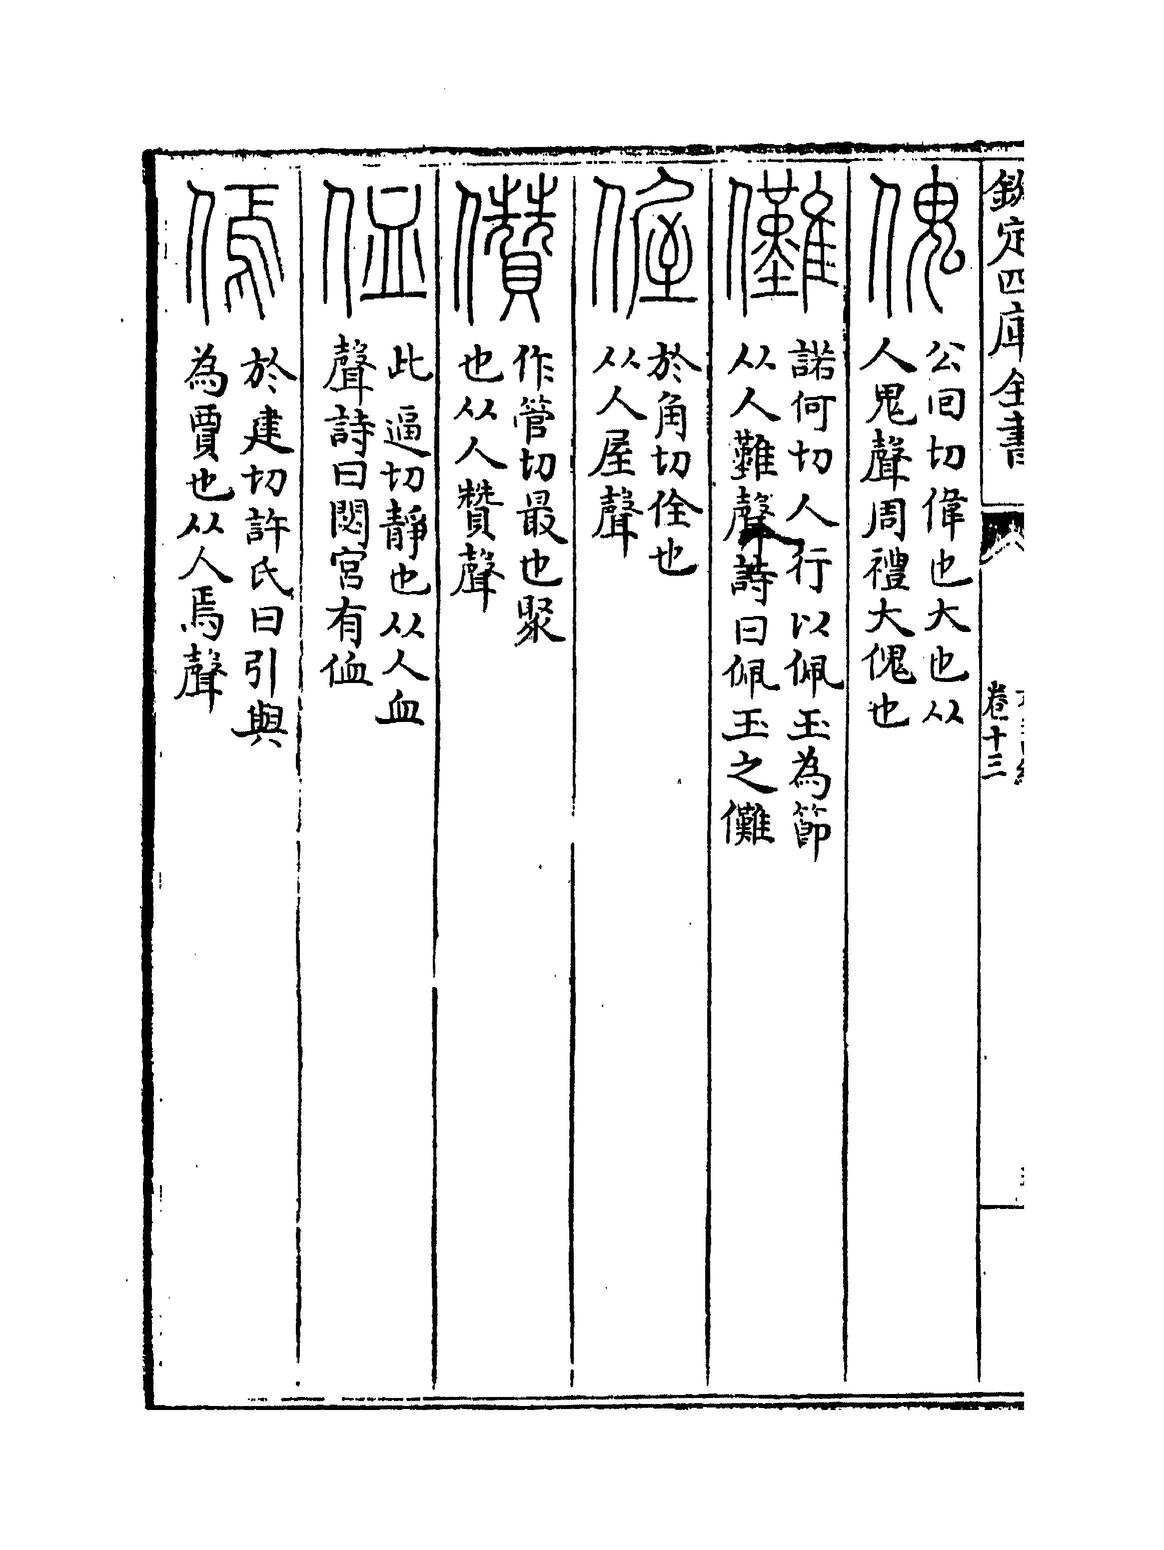 欽定四庫全書
卷十三
傀
公回切偉也大也从
人鬼聲周禮大傀也
儺
諾何切人行以佩玉為節
从人難聲詩曰佩玉之儺
偓
於角切佺也
从人屋聲
儧
作管切最也聚
也从人贊聲
侐
此逼切靜也从人血
聲詩曰閟宮有侐
傿
於建切許氏曰引與
為賈也从人焉聲